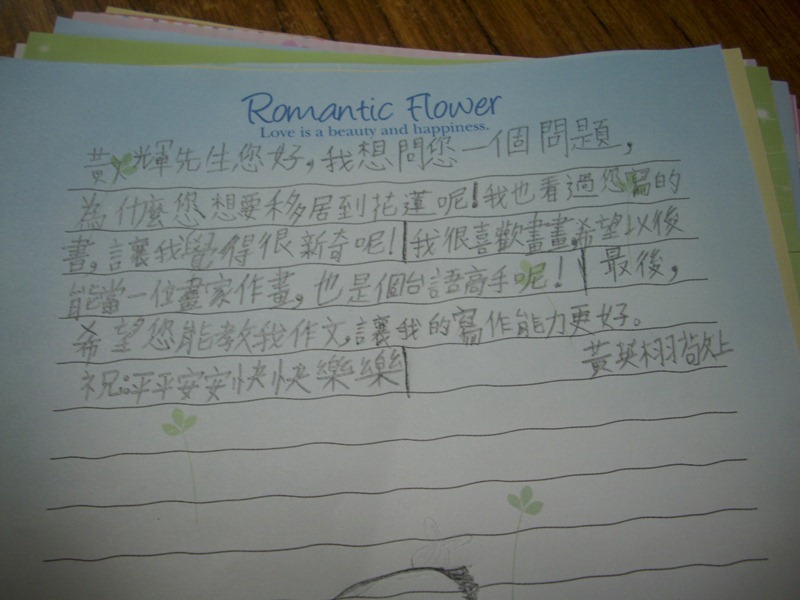 Romantic Flower
Love is a beauty and happiness.
黃火輝先生您好,我想問您一個問題,
為什麼您想要移居到花蓮呢!我也看過您寫的
書,讓我覺得很新奇呢!我很喜歡畫畫,希望以後
能當一位畫家作畫,也是個台語高手呢!最後,
希望您能教我作文,讓我的寫作能力更好。
黃英栩敬上
祝:平平安安快快樂樂